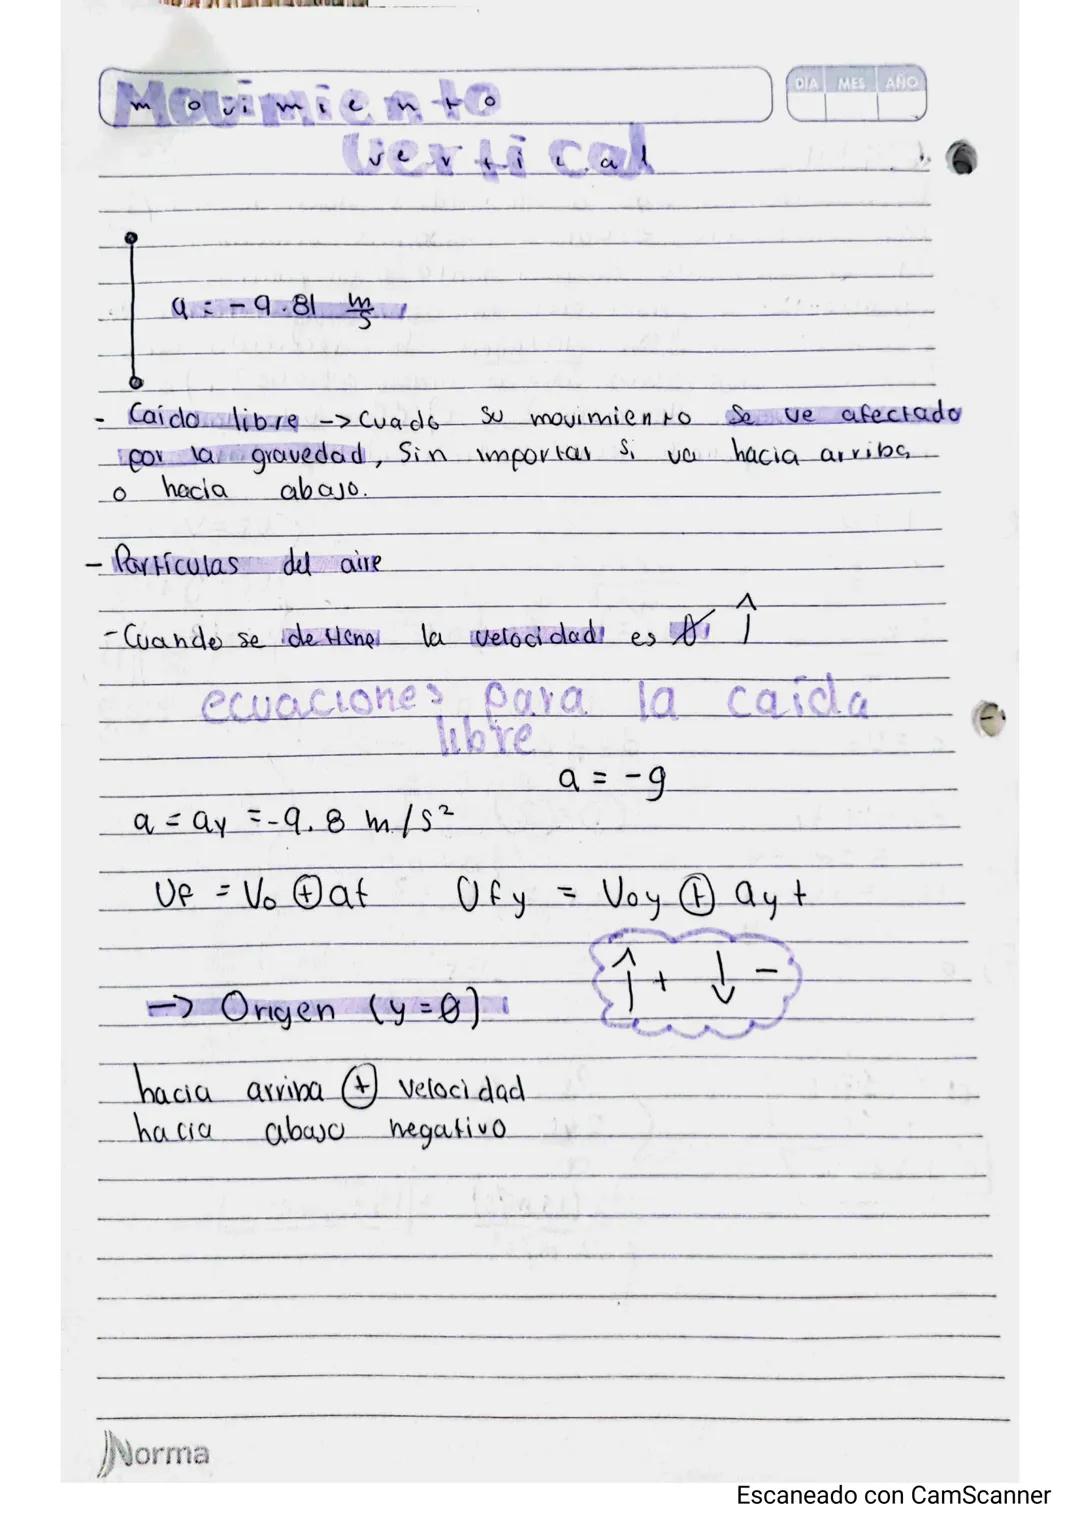 Movimiento
DÍA MES AÑO
vertical
a = -9.81 m/s
- Caída libre -> Cuado su movimiento se ve afectado
por la gravedad, Sin importar si va hacia arriba
o hacia abajo.
- Partículas del aire
- Cuando se detiene la velocidad es 0 ↑
ecuaciones para la caída
libre
a = -g
a = ay = -9.8 m/s²
Vf = Vo ⊕ at Vfy = Voy ⊕ ay t
↑ + ↓ -
-> Origen (y = 0)
hacia arriba ⊕ velocidad
hacia abajo negativo
Norma
Escaneado con CamScanner